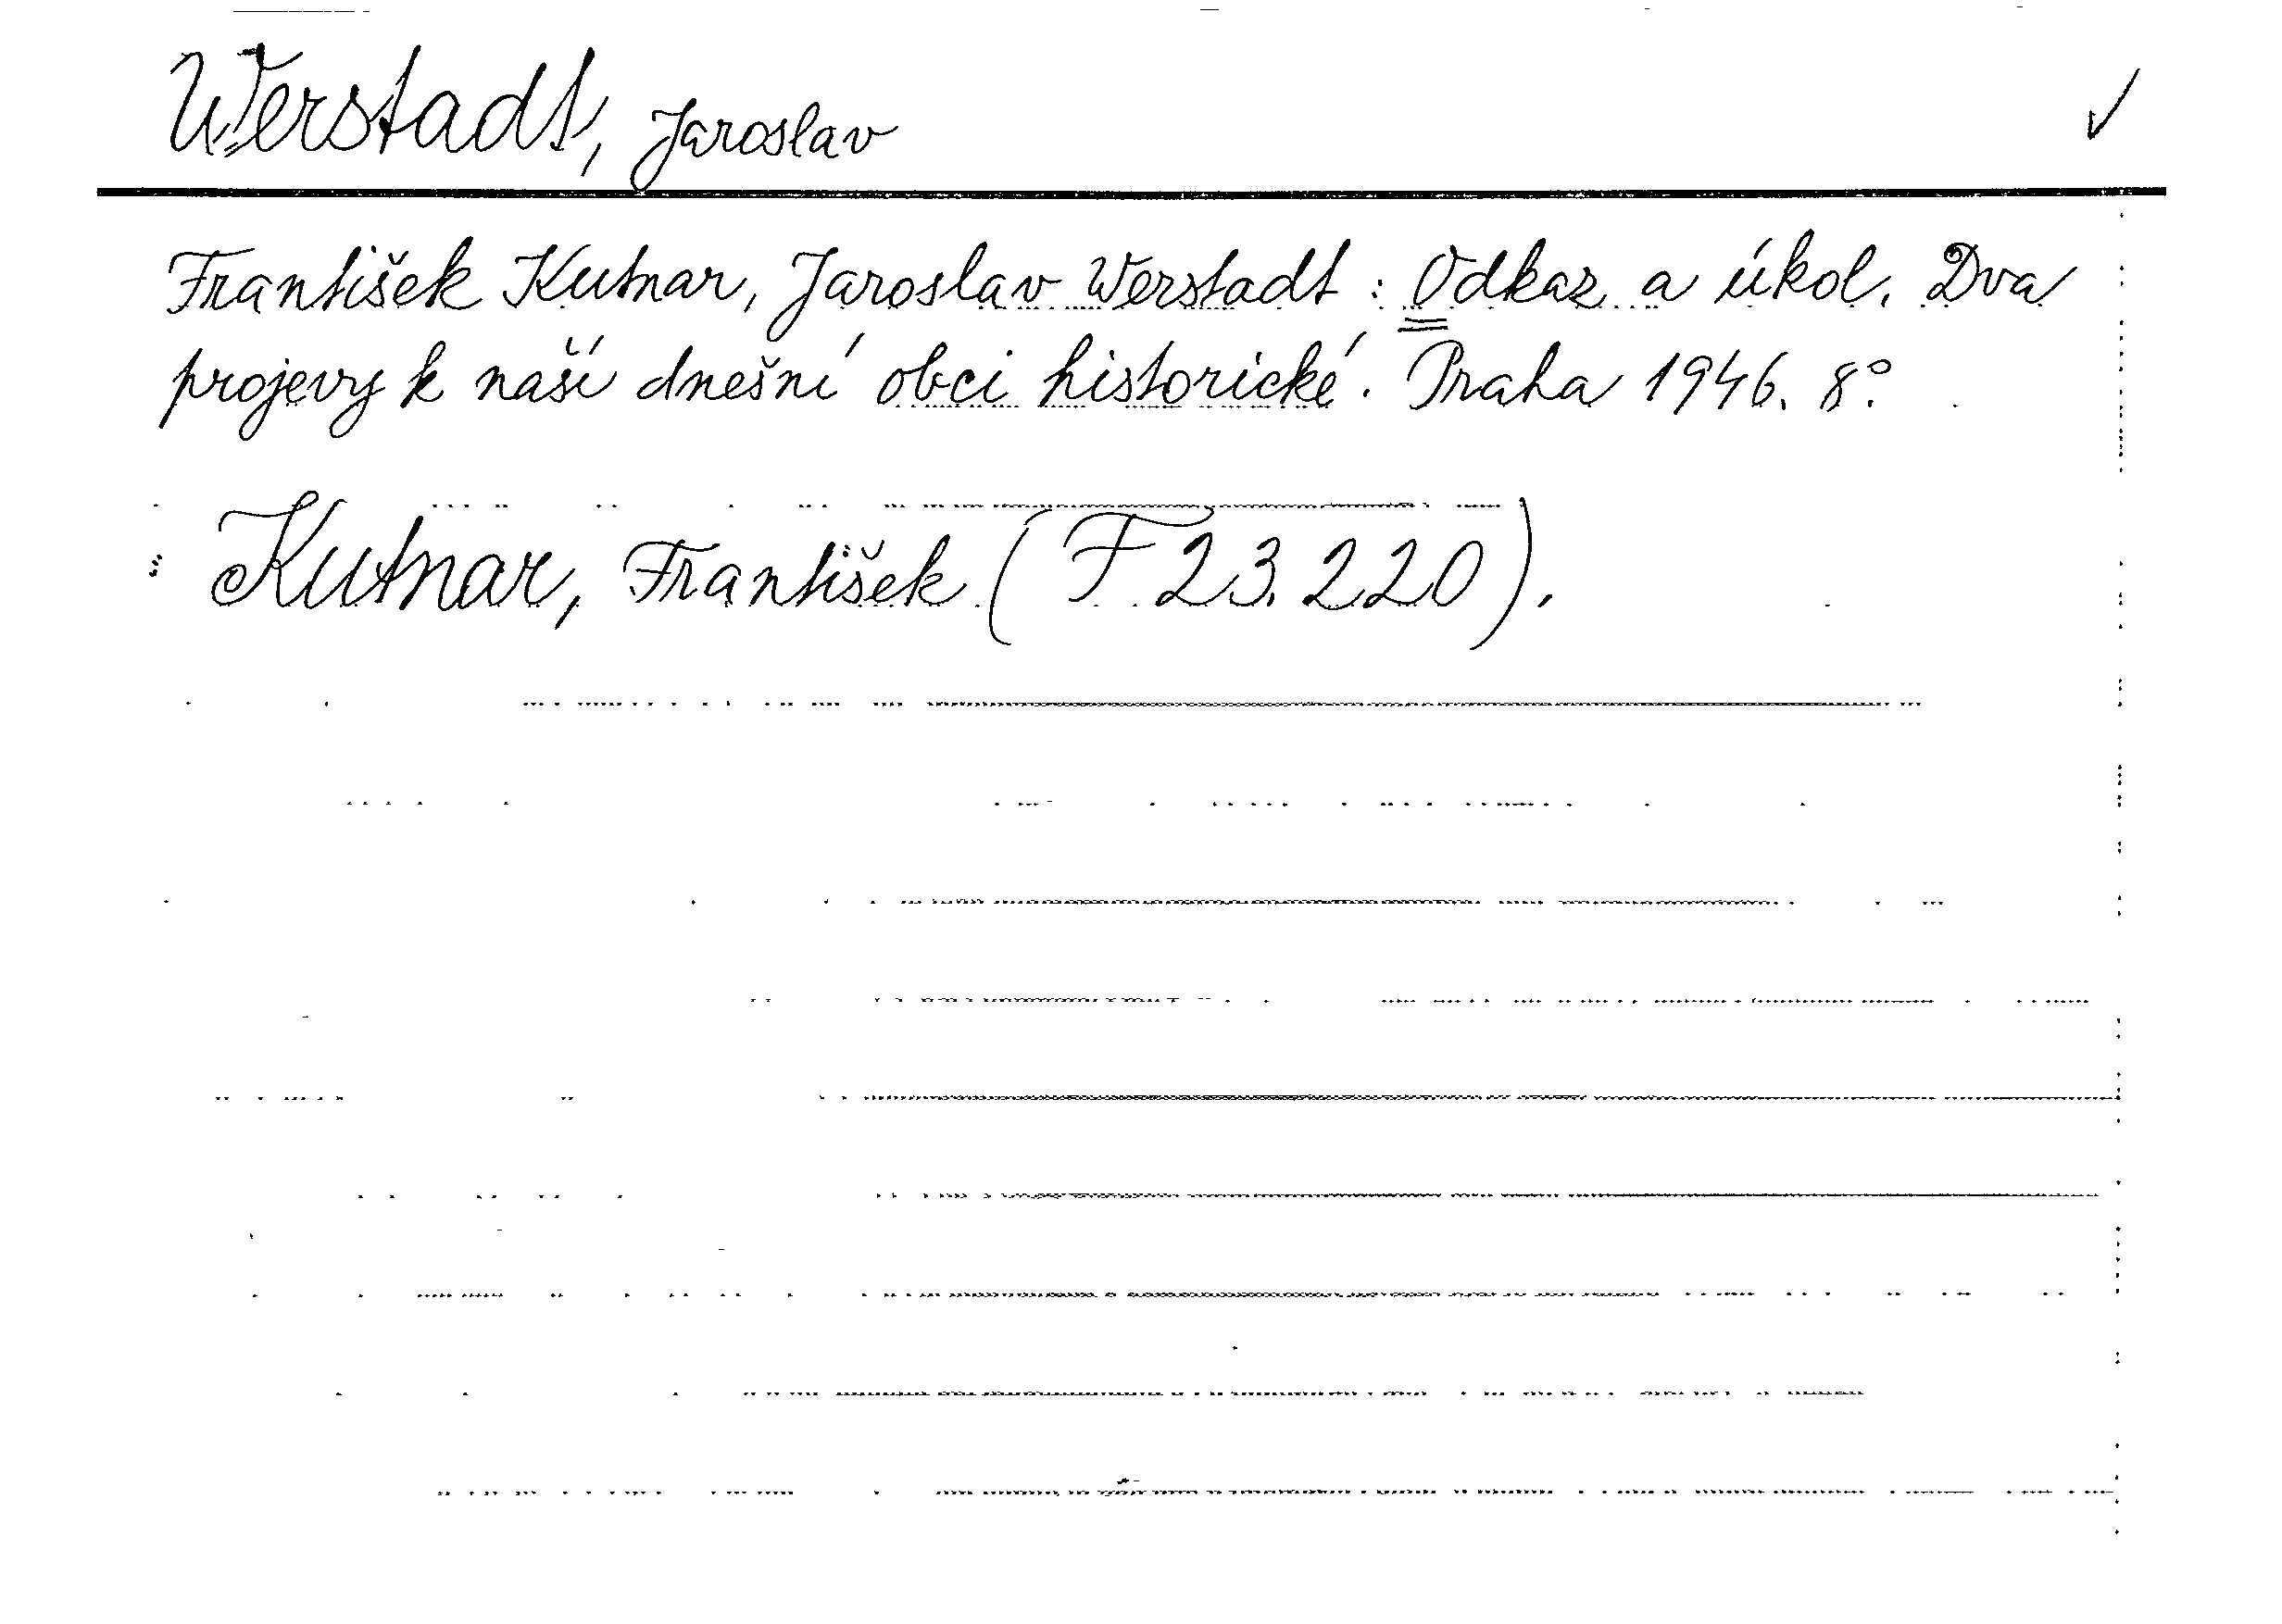 Werstadt, Jaroslav ✓
František Kutnar, Jaroslav Werstadt : Odkaz a úkol. Dva
projevy k naší dnešní obci historické. Praha 1946. 8°.
Kutnar, František (F 23.220).